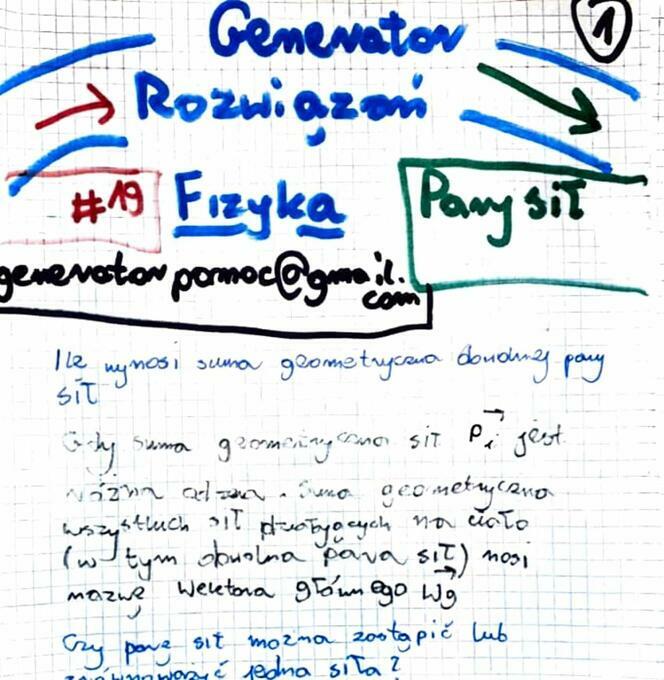 Generator
1
Rozwiązań
#19
Fizyka
Pary sił
generatorpomoc@gmail.
com
Ile wynosi suma geometryczna dowolnej pary
sił
Gdy suma geometryczna sił Pi jest
różna od zera. Suma geometryczna
wszystkich sił działających na ciało
(w tym dowolna para sił) nosi
nazwę wektora głównego Wg
Czy parę sił można zastąpić lub
zrównoważyć jedną siłą?